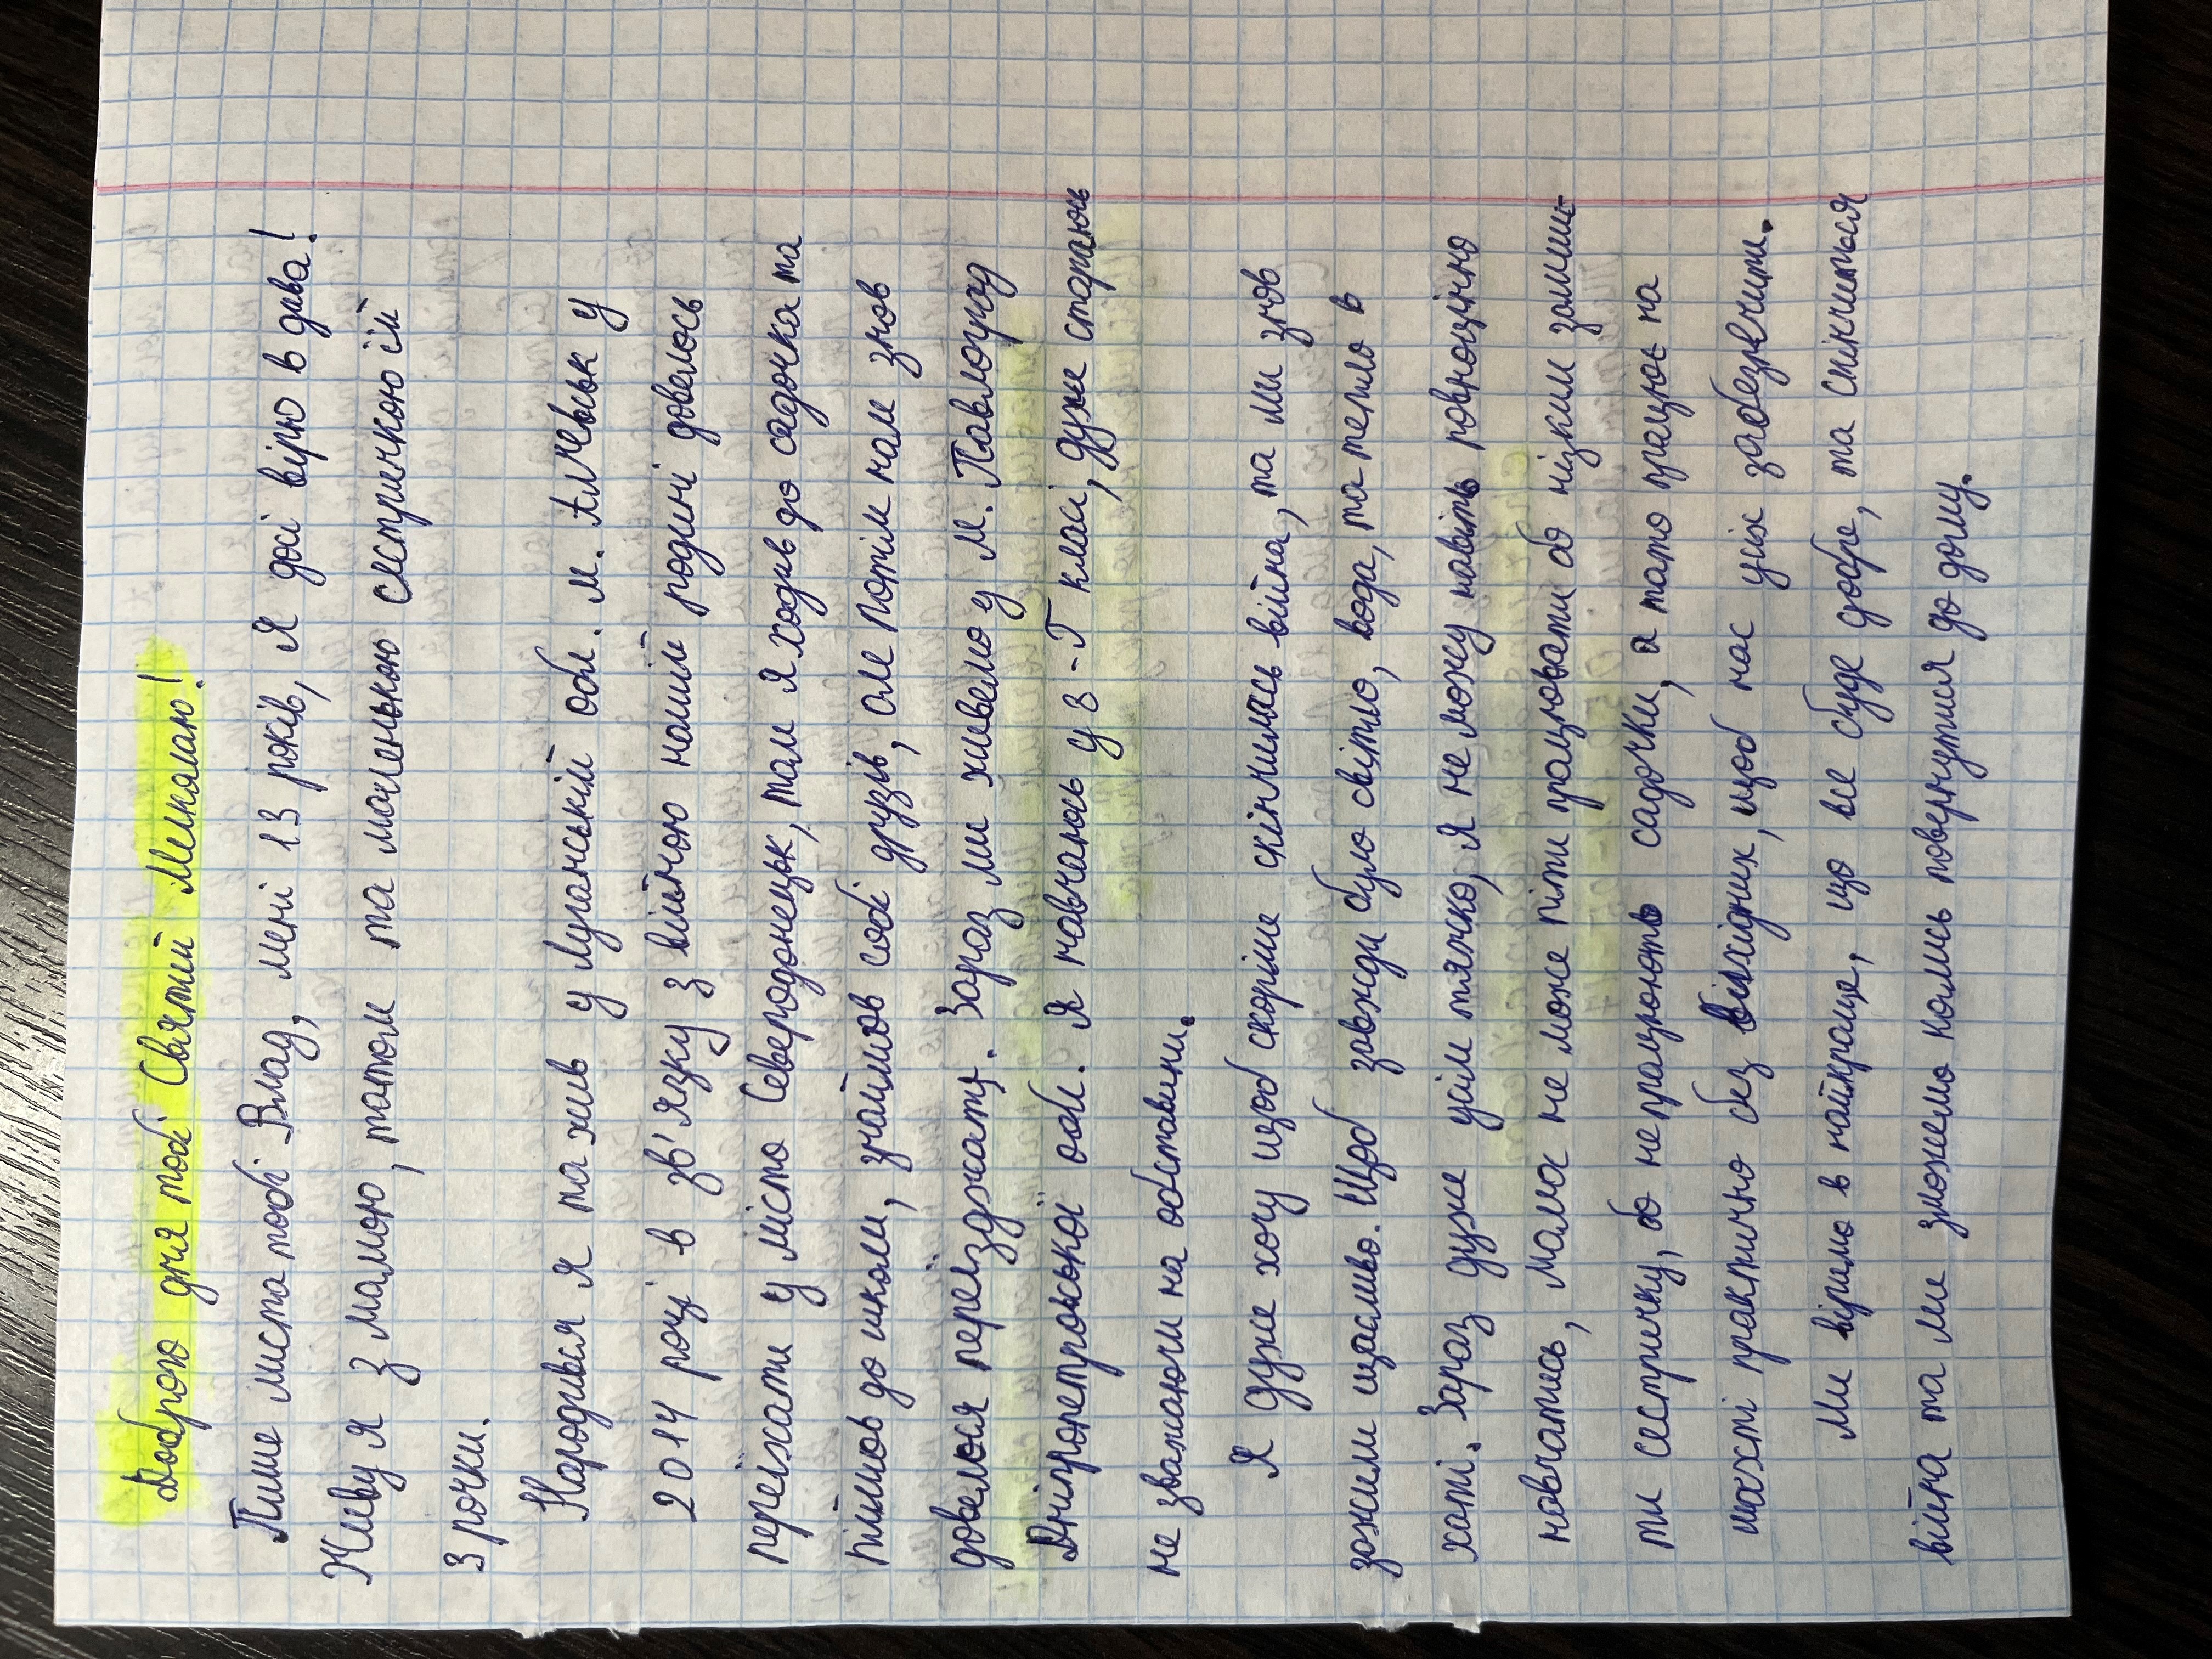 Доброго дня тобі Святий Миколаю!
Пише листа тобі Влад, мені 13 років, Я досі вірю в дива!
Живу я з мамою, татом та маленькою сестричкою їй
3 рочки.
Народився я та жив у Луганській обл. м. Алчевськ у
2014 році в зв'язку з війною нашій родині довелось
переїхати у місто Сєвєродонецьк, там я ходив до садочка та
пійшов до школи, знайшов собі друзів, але потім нам знов
довелося переїзджати. Зараз ми живемо у м. Павлоград
Дніпропетровської обл. Я навчаюсь у 8-Г класі, дуже стараюсь
не зважаючи на обставини.
Я дуже хочу щоб скоріше скінчилась війна, та ми знов
зажили щасливо. Щоб завжди було світло, вода, та тепло в
хаті. Зараз дуже усім тяжко, я не можу навіть повноцінно
навчатись, мама не може піти працювати бо нізким залиши-
ти сестричку, бо не працюють садочки, а тато працює на
шахті практично без вихідних, щоб нас усіх забезпечити.
Ми віримо в найкраще, що все буде добре, та скінчиться
війна та ми зможемо колись повернутися до дому.